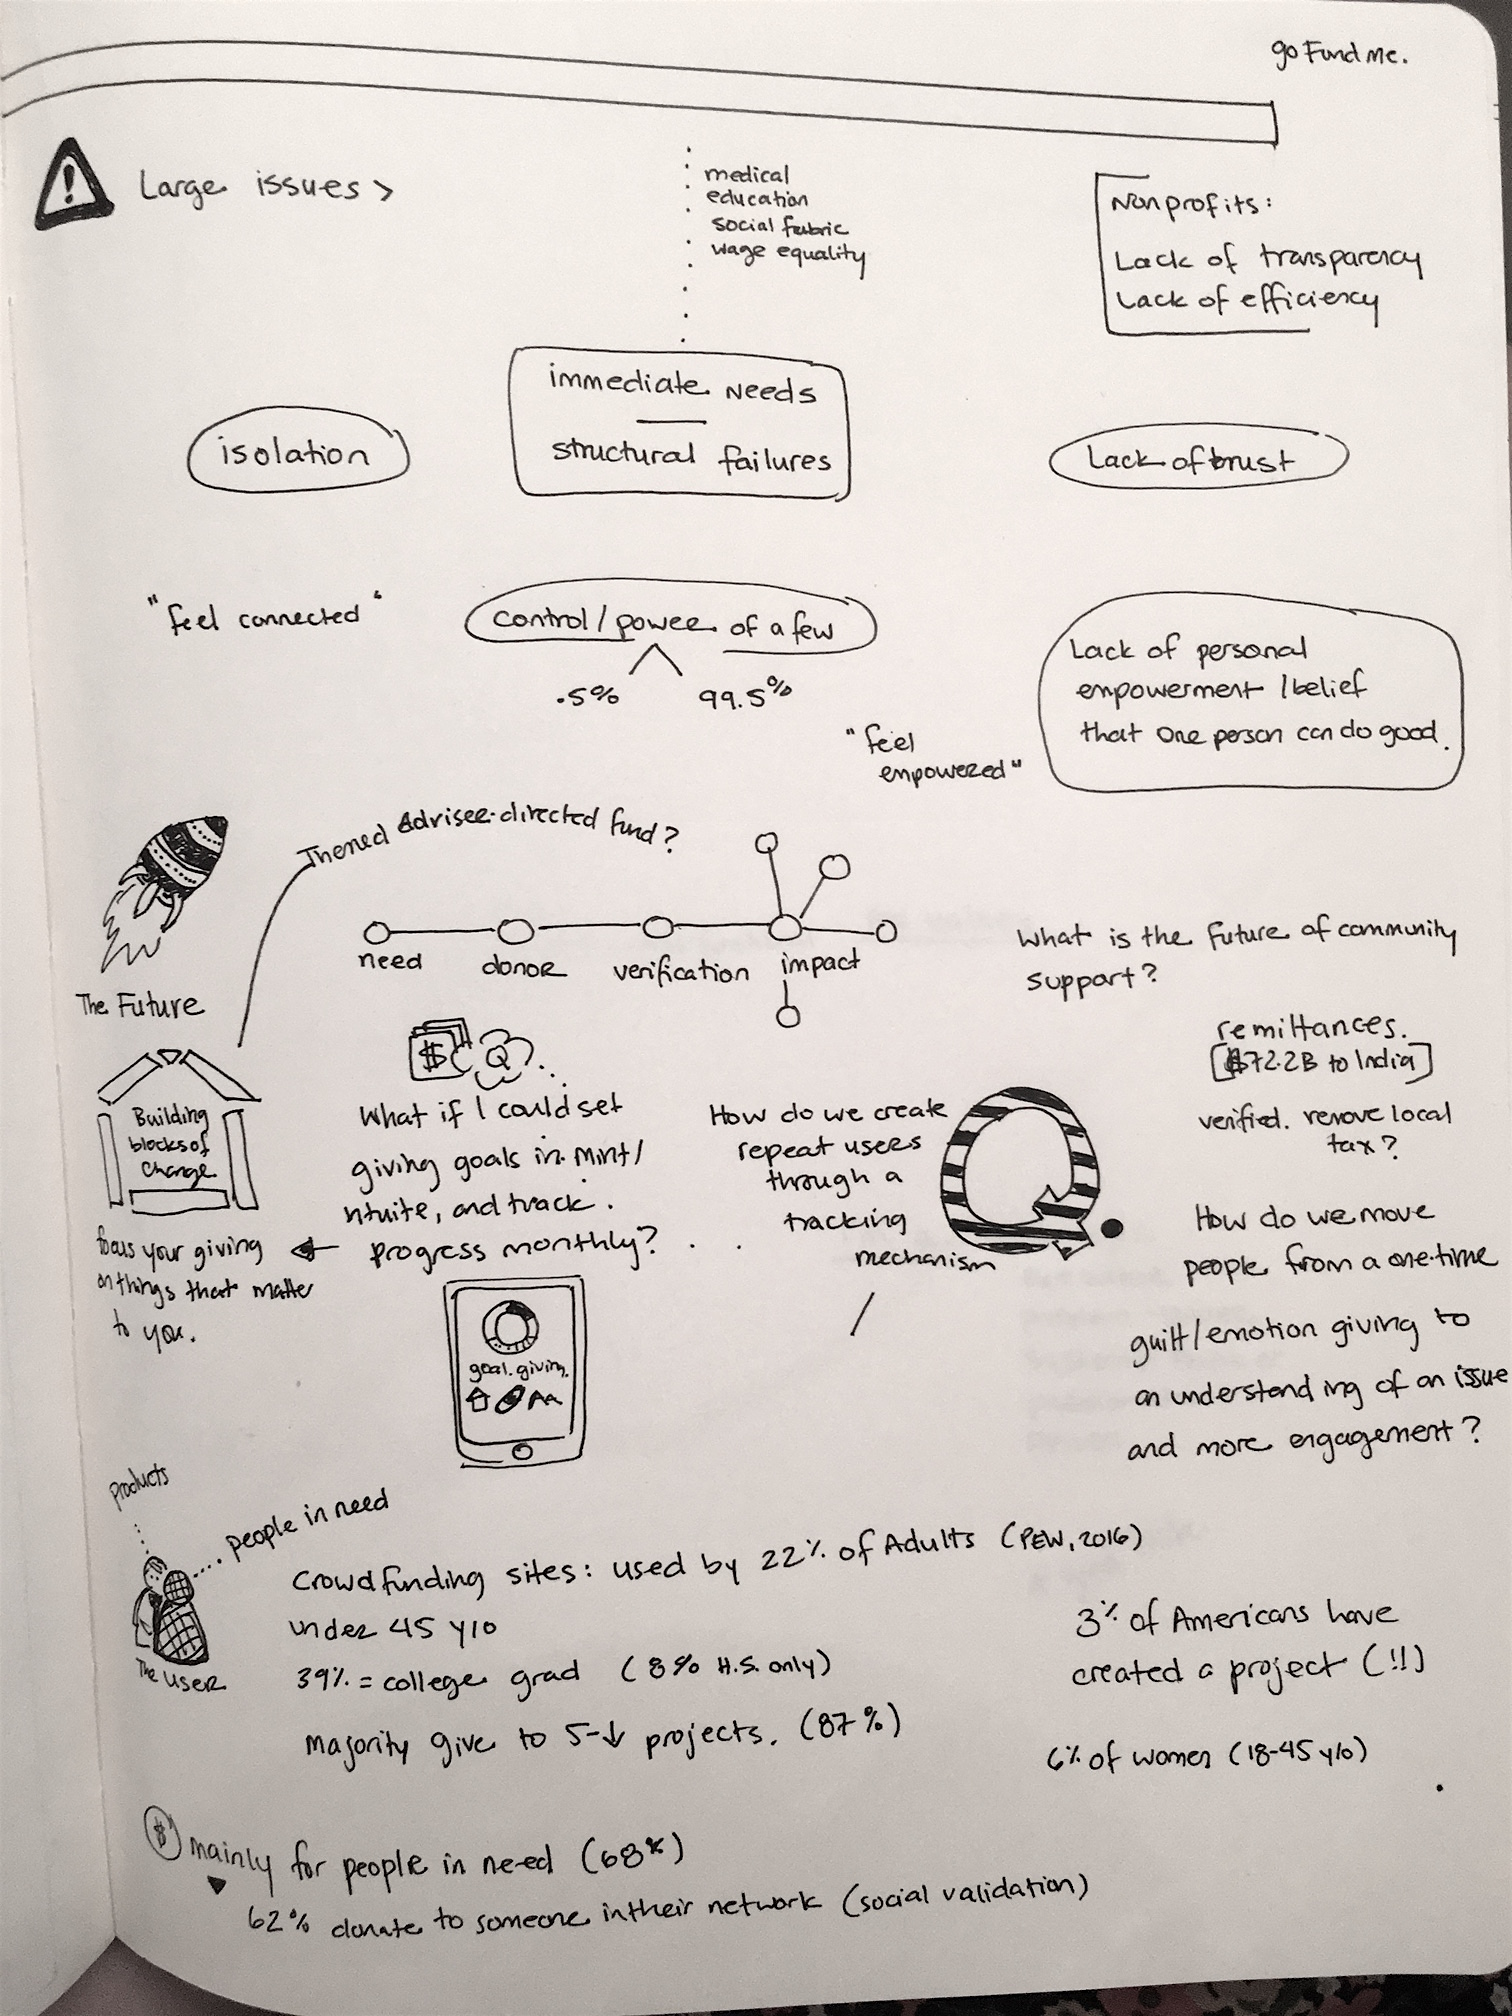 go Fund Me.
!
Large issues >
medical
education
social fabric
wage equality
Nonprofits:
Lack of transparency
Lack of efficiency
immediate needs
structural failures
isolation
Lack of trust
"feel connected"
control / power of a few
.5%
99.5%
Lack of personal
empowerment / belief
that one person can do good.
"feel
empowered"
Themed Advisee-directed fund?
need
donor
verification
impact
The Future
What is the future of community
support?
remittances.
[$72.2B to India]
verified. remove local
tax?
Building
blocks of
Change
focus your giving
on things that matter
to you.
$
Q
What if I could set
giving goals in Mint/
ntuite, and track
progress monthly?
goal.giving.
How do we create
repeat users
through a
tracking
mechanism
Q.
How do we move
people from a one-time
guilt/emotion giving to
an understanding of an issue
and more engagement?
products
people in need
The User
Crowdfunding sites: used by 22% of Adults (PEW, 2016)
under 45 y/o
39% = college grad (8% H.S. only)
majority give to 5-↓ projects. (87%)
3% of Americans have
created a project (!!)
6% of women (18-45 y/o)
$ mainly for people in need (68%)
62% donate to someone in their network (social validation)